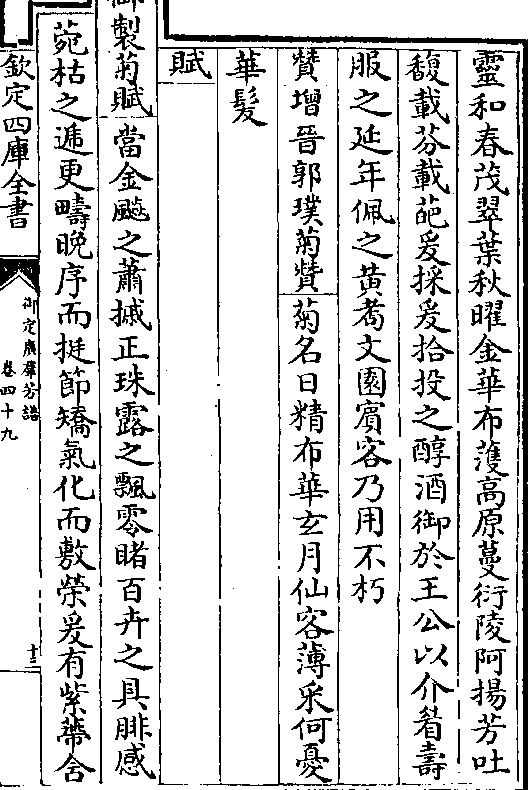 靈和春茂翠葉秋曜金華布濩高原蔓衍陵阿揚芳吐
馥載芬載葩爰採爰拾投之醇酒御於王公以介眉壽
服之延年佩之黄耇文園賓客乃用不朽
贊增晉郭璞菊贊 菊名日精布華玄月仙客薄采何憂
華髮
賦
御製菊賦 當金飈之蕭摵正珠露之飄零睹百卉之具腓感
菀枯之遞更疇晚序而挺節矯氣化而敷榮爰有紫蔕舍
欽定四庫全書
御定廣羣芳譜
卷四十九
十三